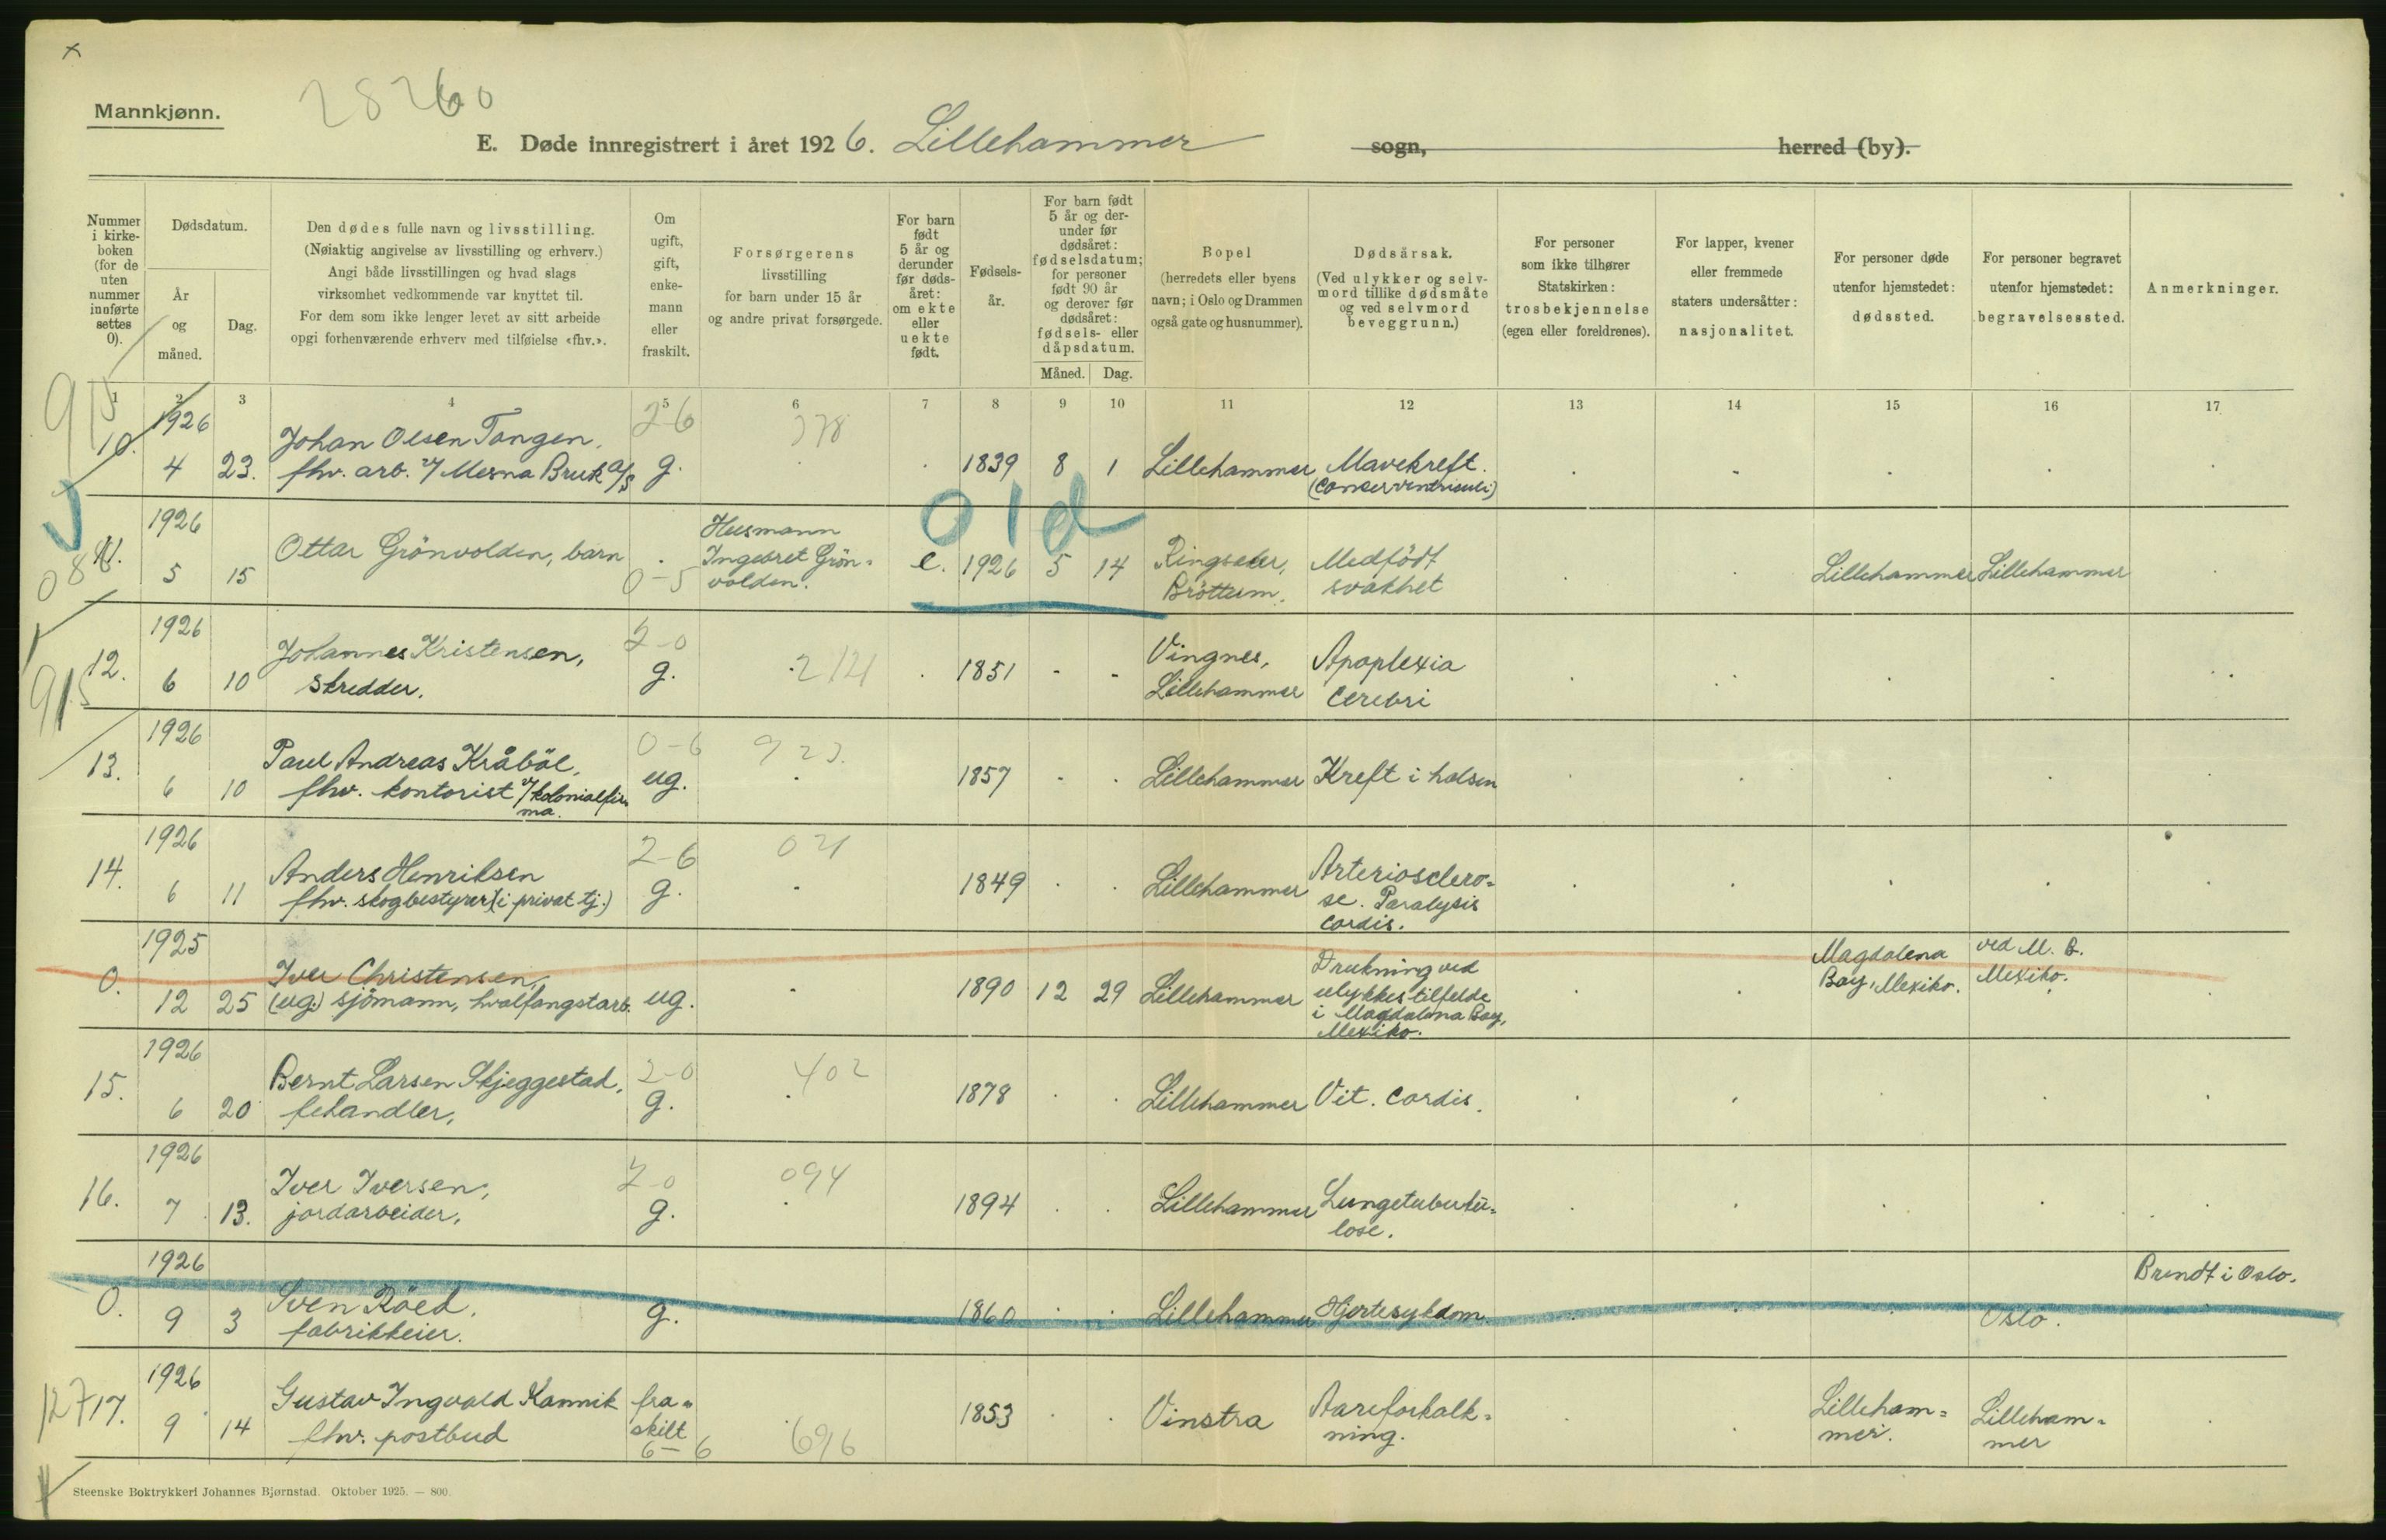 x
28260
Mannkjønn.
E. Døde innregistrert i året 1926. Lillehammer sogn, herred (by).
Nummer i kirkeboken (for de uten nummer innførte settes 0).
Dødsdatum.
År og måned.
Dag.
Den dødes fulle navn og livsstilling.
(Nøiaktig angivelse av livsstilling og erhverv.)
Angi både livsstillingen og hvad slags
virksomhet vedkommende var knyttet til.
For dem som ikke lenger levet av sitt arbeide
opgi forhenværende erhverv med tilføielse «fhv.».
Om ugift, gift, enkemann eller fraskilt.
Forsørgerens
livsstilling
for barn under 15 år
og andre privat forsørgede.
For barn født 5 år og derunder før dødsåret: om ekte eller uekte født.
Fødselsår.
For barn født 5 år og derunder før dødsåret: fødselsdatum; for personer født 90 år og derover før dødsåret: fødsels- eller dåpsdatum.
Måned. Dag.
Bopel
(herredets eller byens
navn; i Oslo og Drammen
også gate og husnummer).
Dødsårsak.
(Ved ulykker og selvmord tillike dødsmåte
og ved selvmord
beveggrunn.)
For personer
som ikke tilhører
Statskirken:
trosbekjennelse
(egen eller foreldrenes).
For lapper, kvener
eller fremmede
staters undersåtter:
nasjonalitet.
For personer døde
utenfor hjemstedet:
dødssted.
For personer begravet
utenfor hjemstedet:
begravelsessted.
Anmerkninger.
1 2 3 4 5 6 7 8 9 10 11 12 13 14 15 16 17
915
10. 1926 4 23. Johan Olsen Tangen, 2-6 378
fhv. arb. v/ Mesna Bruk A/S g. 1839 8 1 Lillehammer Mavekreft.
(Cancer ventriculi)
old
11. 1926 5 15 Ottar Grönvolden, barn 0-5 Husmann
Ingebret Grön-
volden. e. 1926 5 14 Ringsaker, Bröttum. Medfödt svakhet Lillehammer Lillehammer
088
12. 1926 6 10 Johannes Kristensen, 2-0
skredder. g. 1851 - - Vingnes, Lillehammer Apoplexia cerebri
915
13. 1926 6 10 Paul Andreas Kråböl, 0-6 923
fhv. kontorist v/ kolonialfirma. ug. 1857 Lillehammer Kreft i halsen
14. 1926 6 11 Anders Henriksen 2-6 021
fhv. skogbestyrer (i privat tj.) g. 1849 Lillehammer Arteriosclero-
se. Paralysis
cordis.
0. 1925 12 25 Iver Christensen,
(ug.) sjömann, hvalfangstarb. ug. 1890 12 29 Lillehammer Drukning ved
ulykkestilfelde
i Magdalena Bay,
Mexiko. Magdalena Bay, Mexiko. ved M. B. Mexiko.
15. 1926 6 20 Bernt Larsen Skjeggestad, 2-0 402
fehandler, g. 1878 Lillehammer Vit. cordis.
16. 1926 7 13. Iver Iversen, 2-0 094
jordarbeider, g. 1894 Lillehammer Lungetuberku-
lose.
0. 1926 9 3 Sven Röed,
fabrikkeier. g. 1860 Lillehammer Hjertesykdom Oslo. Brendt i Oslo.
127
17. 1926 9 14 Gustav Ingvald Kannik
fhv. postbud fra-
skilt 6-6 696 1853 Vinstra Aareforkalk-
ning. Lilleham-
mer. Lilleham-
mer
Steenske Boktrykkeri Johannes Bjørnstad. Oktober 1925. — 800.